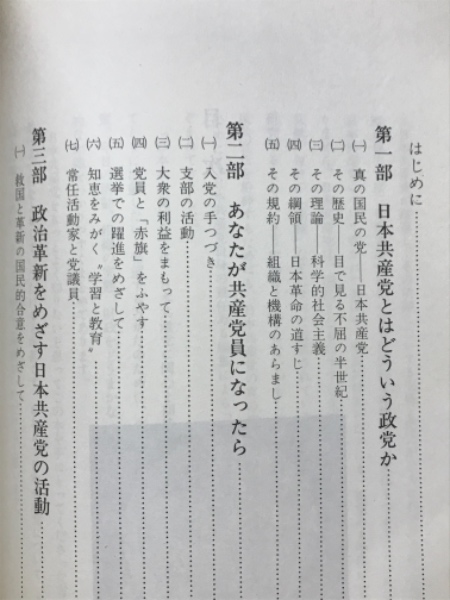 はじめに
第一部 日本共産党とはどういう政党か
㈠ 真の国民の党――日本共産党
㈡ その歴史――目で見る不屈の半世紀
㈢ その理論 科学的社会主義
㈣ その綱領――日本革命の道すじ
㈤ その規約――組織と機構のあらまし
第二部 あなたが共産党員になったら
㈠ 入党の手つづき
㈡ 支部の活動
㈢ 大衆の利益をまもって
㈣ 党員と「赤旗」をふやす
㈤ 選挙での躍進をめざして
㈥ 知恵をみがく〝学習と教育〟
㈦ 常任活動家と党議員
第三部 政治革新をめざす日本共産党の活動
㈠ 救国と革新の国民的合意をめざして